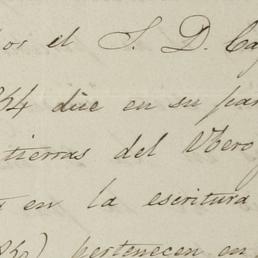 el S. D.
dice en su
tierras del Ubero
en la escritura
pertenecen en